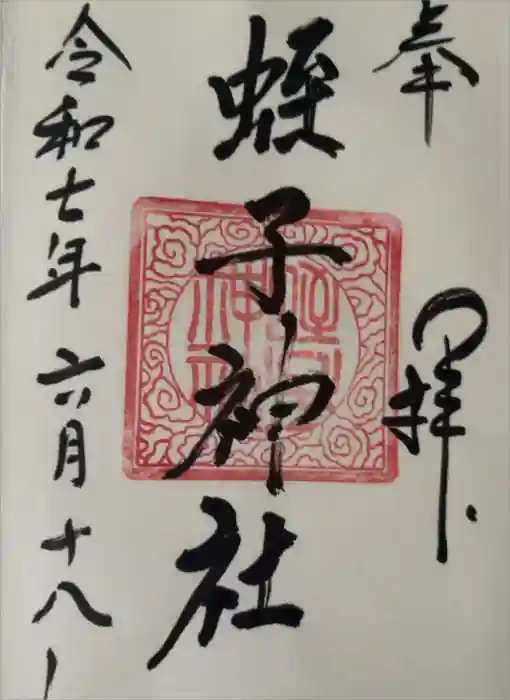 奉拝
蛭子神社
令和七年六月十八日